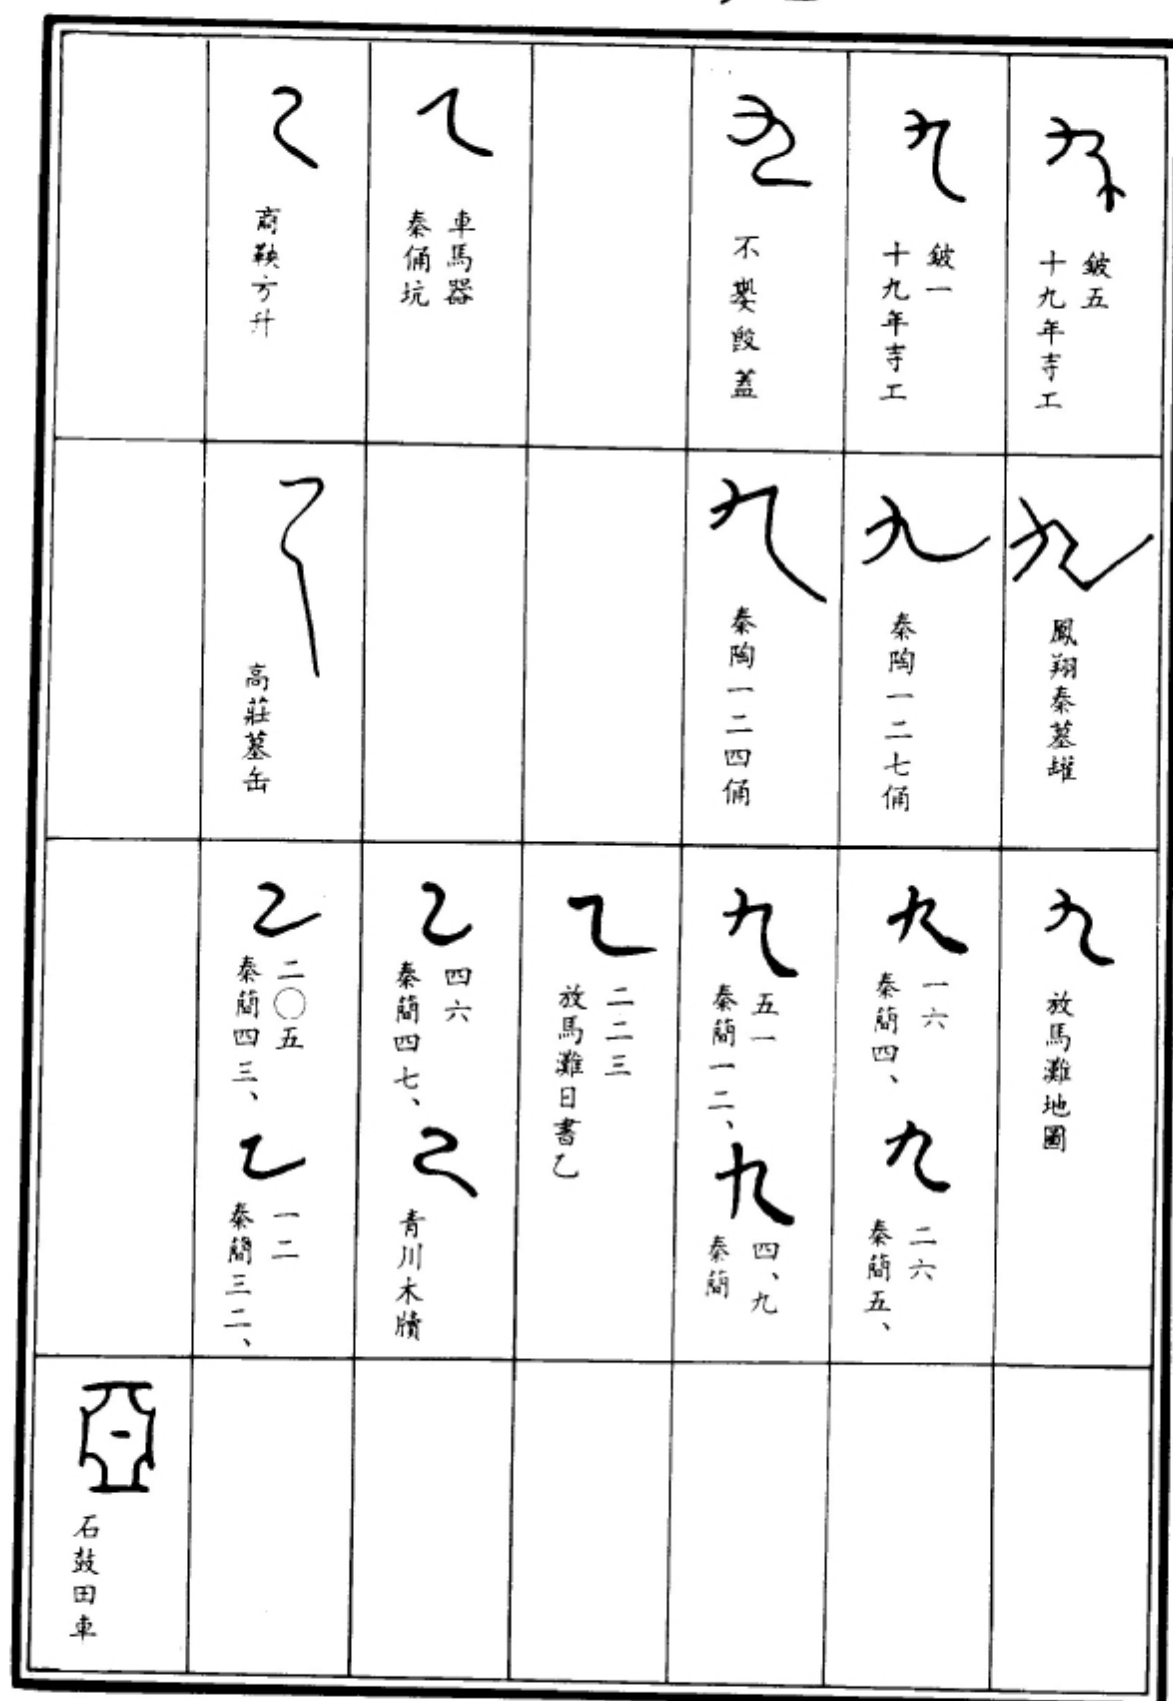 九
十九年寺工
鈹五
九
十九年寺工
鈹一
九
不𡢁𣪘蓋
乙
秦俑坑
車馬器
乙
商鞅方升
九
鳳翔秦墓罐
九
秦陶一二七俑
九
秦陶一二四俑
乙
高莊墓缶
九
放馬灘地圖
九
秦簡四、
一六
九
秦簡五、
二六
九
秦簡一二、
五一
九
秦簡
四、九
乙
放馬灘日書乙
二二三
乙
秦簡四七、
四六
乙
青川木牘
乙
秦簡四三、
二〇五
乙
秦簡三二、
一二
石鼓田車